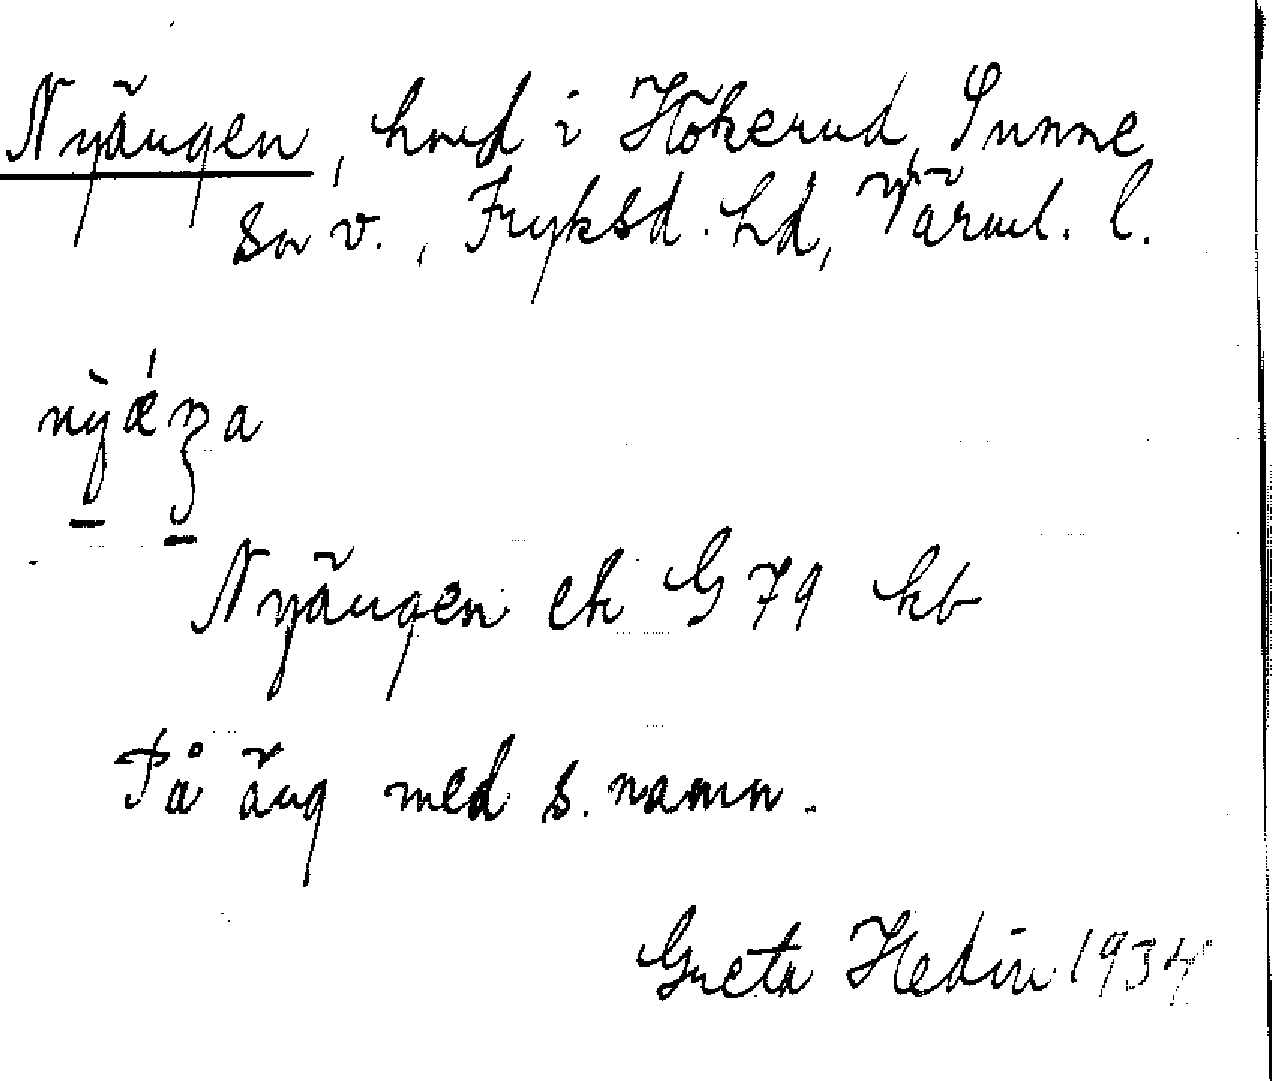 Nyängen, hmd i Hökerud, Sunne
sn v., Fryksd. hd, Värml. l.
nỳǽŋa
Nyängen ek G 79 hb
På äng med s. namn.
Greta Hedin 1934